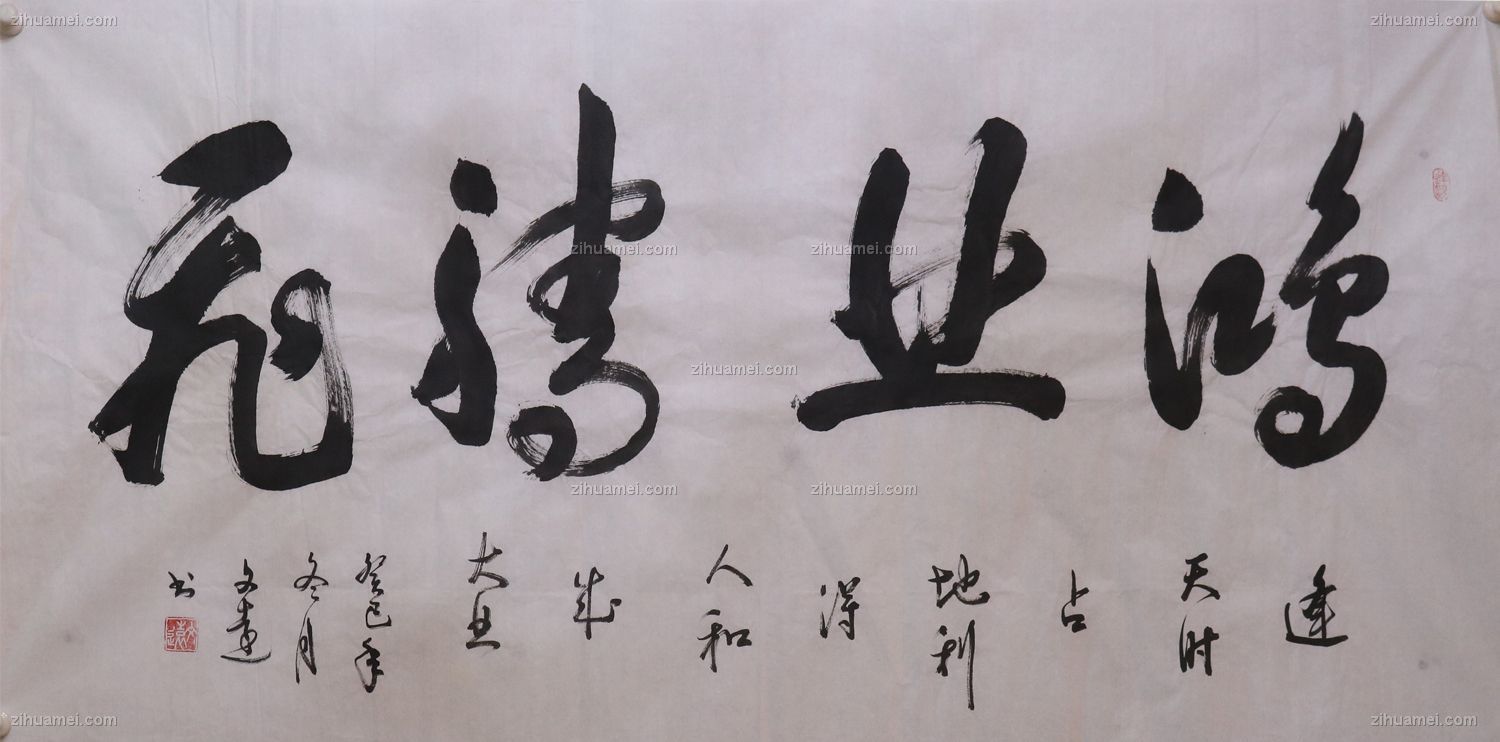 鸿业腾飞
逢
天时
占
地利
得
人和
成
大业
癸巳年
冬月
文远
书
zihuamei.com
zihuamei.com
zihuamei.com
zihuamei.com
zihuamei.com
zihuamei.com
zihuamei.com
zihuamei.com
zihuamei.com